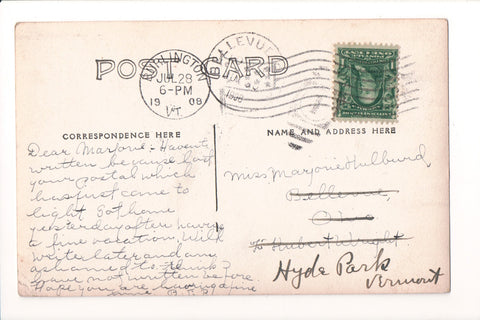 POST CARD
BURLINGTON
JUL 28
6-PM
1908
VT.
BELLEVUE
CORRESPONDENCE HERE
NAME AND ADDRESS HERE
Dear Marjorie:- Haven't
written because lost
your postal which
has just came to
light. Got home
yesterday after having
a fine vacation. Will
write later and am
ashamed to think I
have not written before
Hope you are having a fine
time
Miss Marjorie Hulburd
Bellevue,
Ohio
Hubert Wright.
Hyde Park
Vermont